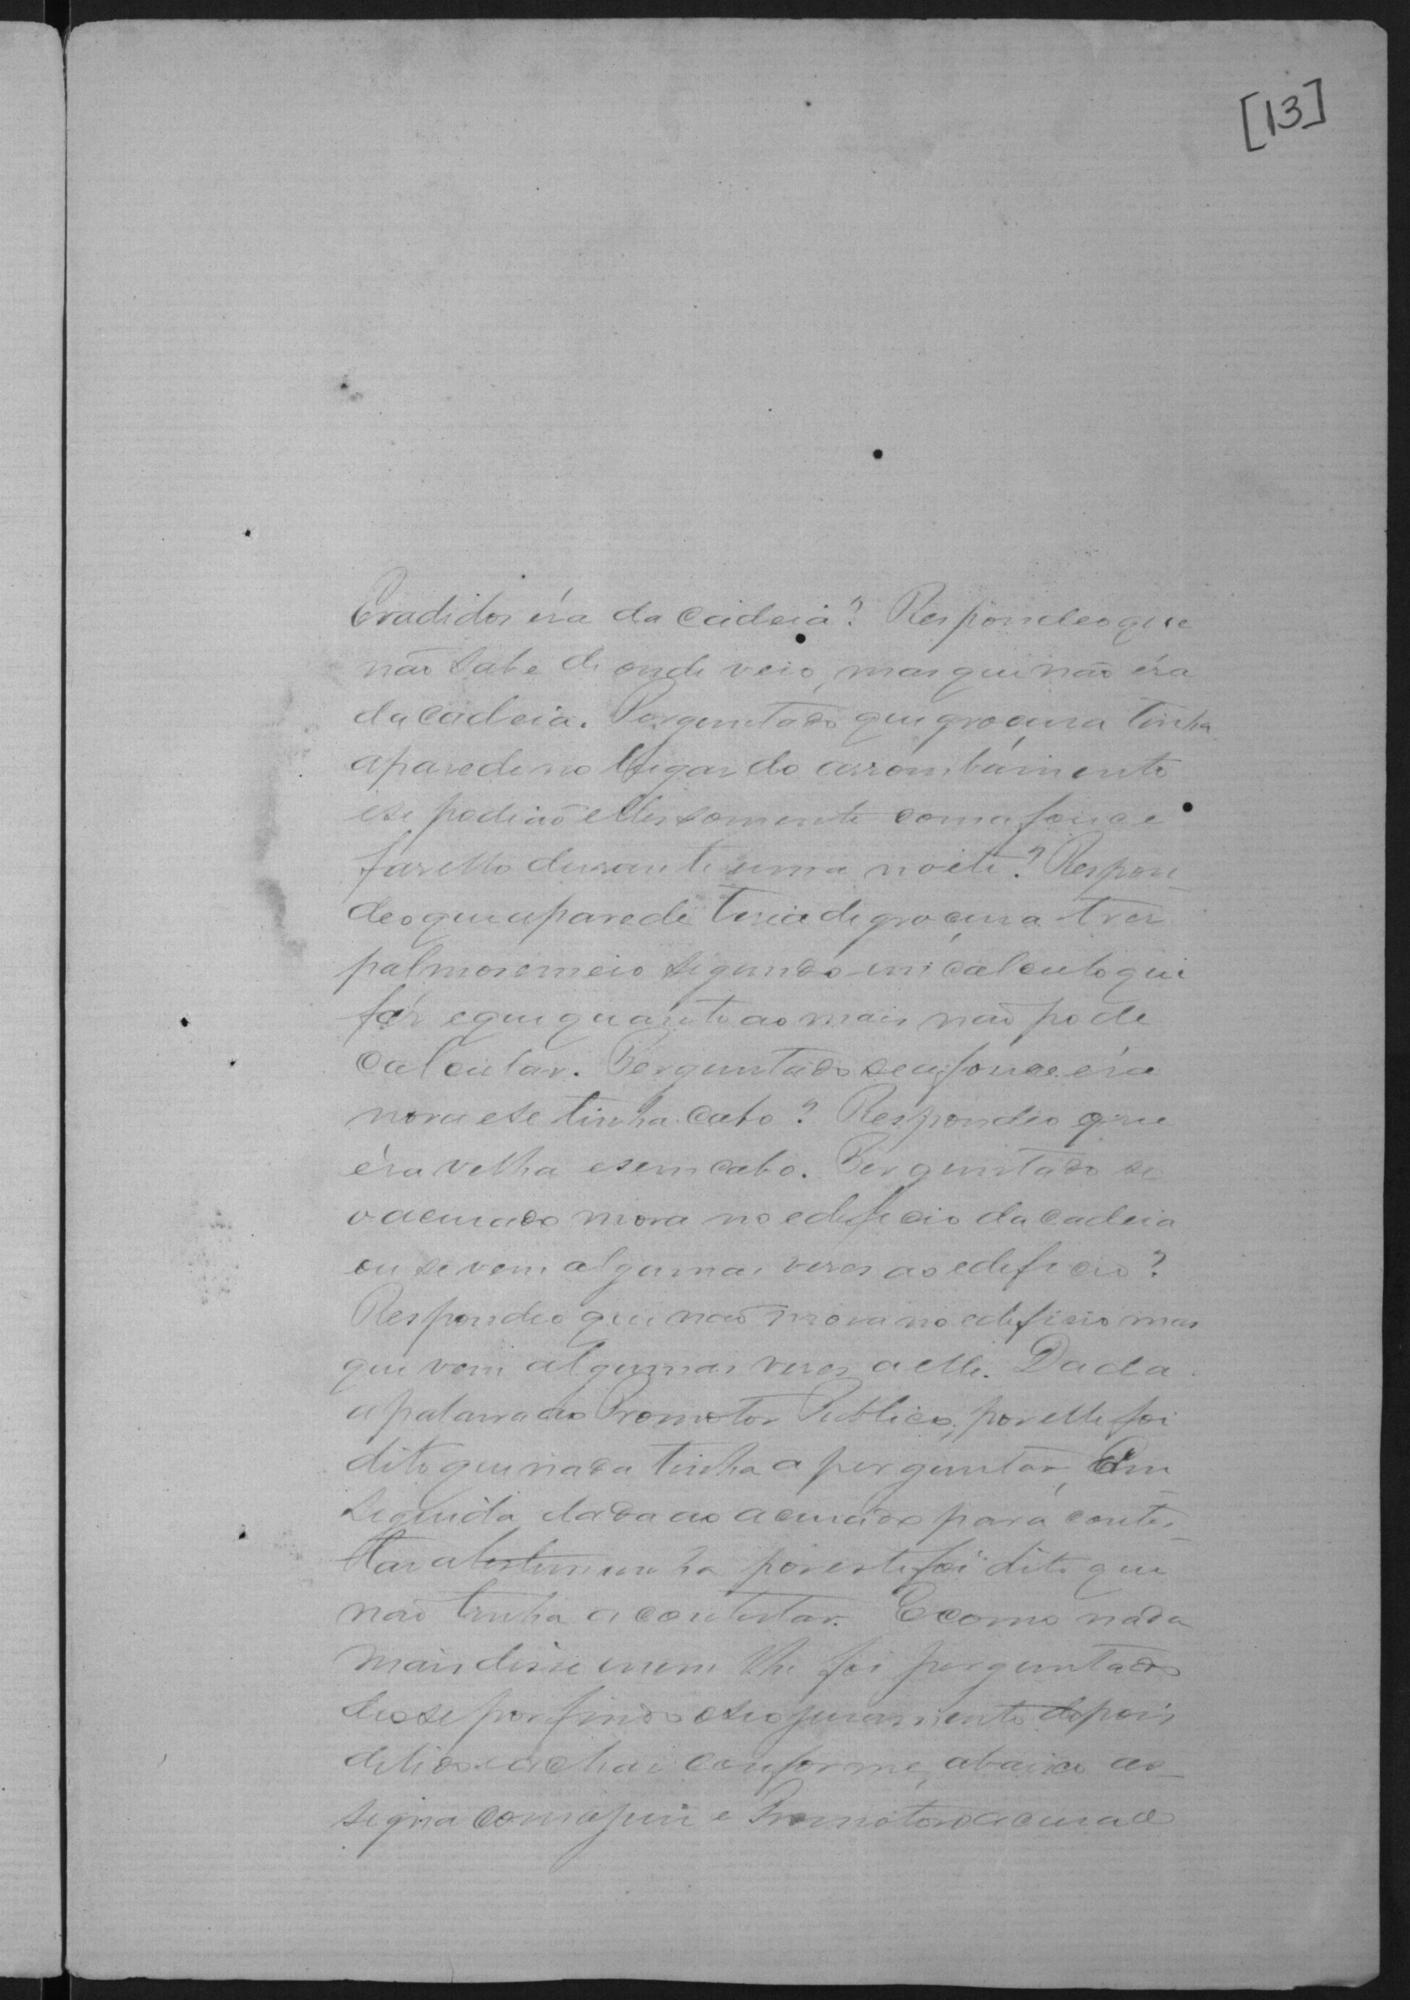 [13]
Evadidos éra da Cadeia? Respondeo que
não sabe de onde veio, mas que não éra
da Cadeia. Perguntado que grocura tinha
a parede no lugar do arrombamento
e se podião elles somente com a fouce
fasello durante uma noite? Respon-
deo que a parede teria de grocura tres
palmos e meio segundo um calculo que
fás e que quanto ao mais não pode
Calcular. Perguntado se a fouce éra
nova e se tinha cabo? Respondeo que
éra velha e sem cabo. Perguntado se
o acusado mora no edeficio da cadeia
ou se vem algumas veses ao edeficio?
Respondeo que não mora no edeficio mas
que vem algumas veses a elle. Dada
a palavra ao Promotor Publico, por elle foi
dito que nada tinha a perguntar. Em
seguida dada ao acusado para contes-
tar a testemunha por este foi dito que
não tinha a contestar. E como nada
mais disse e nem lhe foi perguntado
deo se por findo o seo juramento depois
de lido e achar conforme, abaixo as-
signa com o juis e Promotor o acusado